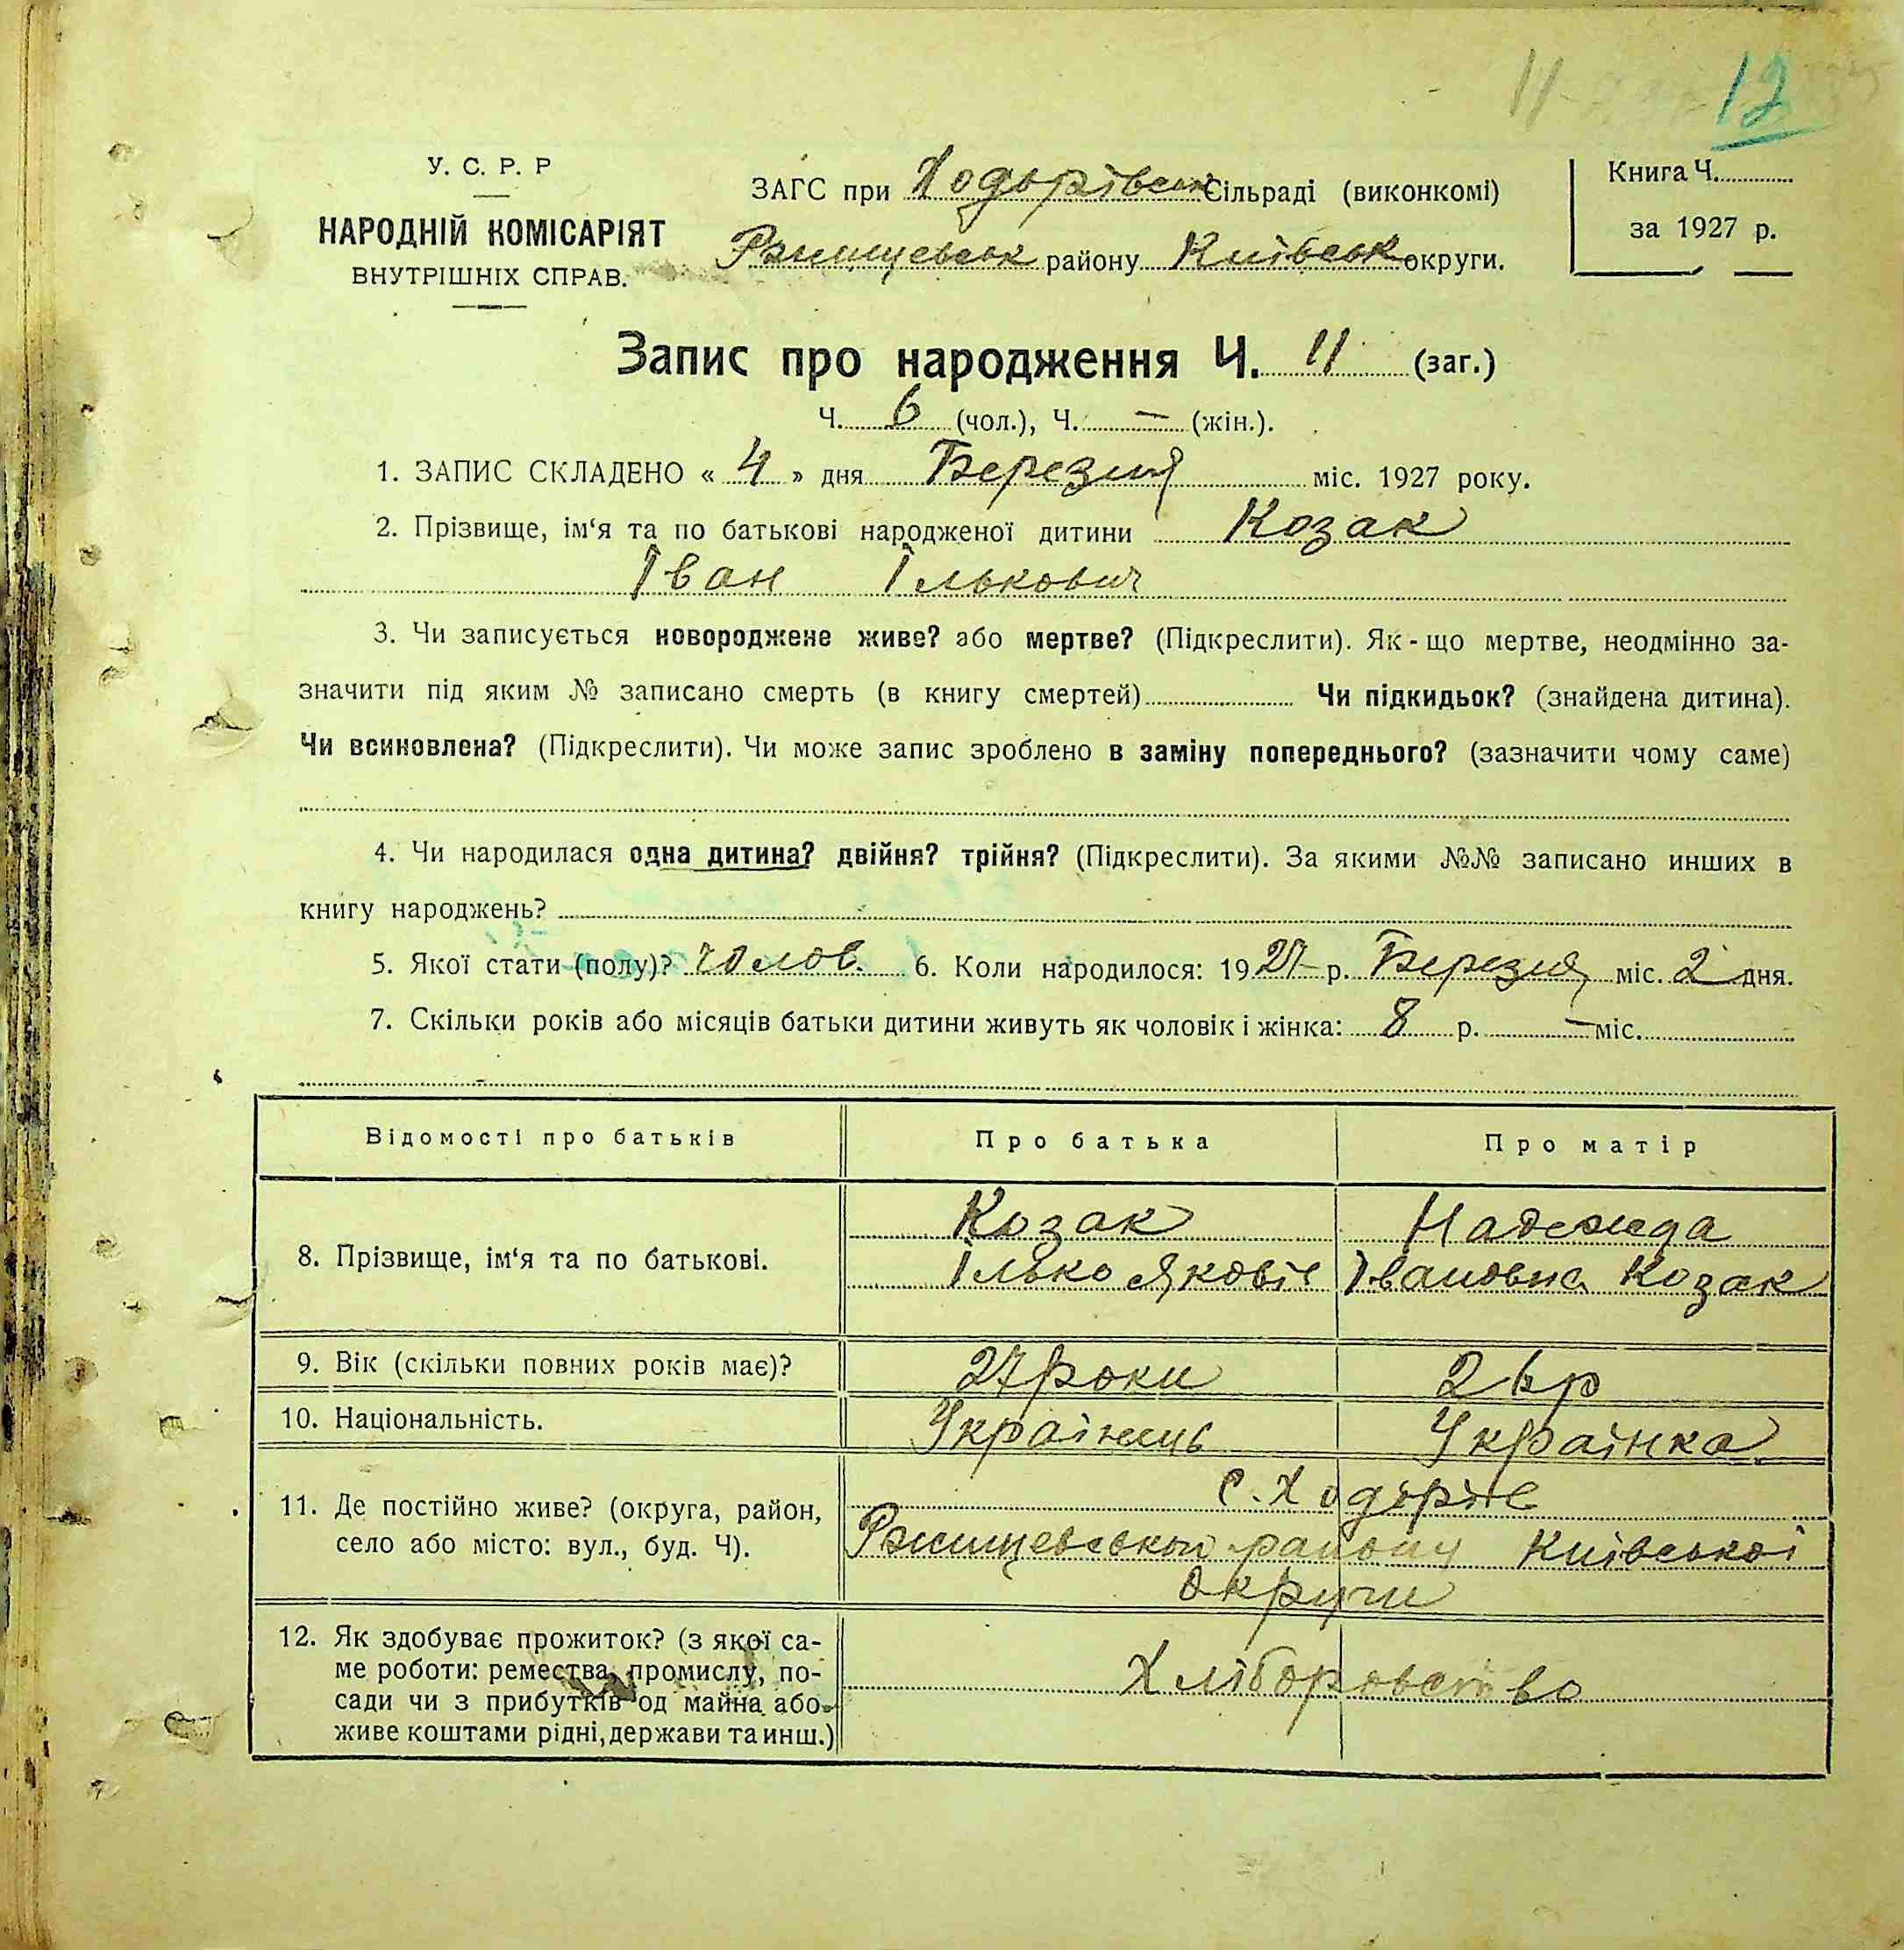 12
У. С. Р. Р
НАРОДНІЙ КОМІСАРІЯТ
ВНУТРІШНІХ СПРАВ.
ЗАГС при Ходорівськ Сільраді (виконкомі)
Ржищевськ району Київськ округи.
Книга Ч.
за 1927 р.
Запис про народження Ч. 11 (заг.)
Ч. 6 (чол.), Ч. — (жін.).
1. ЗАПИС СКЛАДЕНО « 4 » дня Березня міс. 1927 року.
2. Прізвище, ім‘я та по батькові народженої дитини Козак
Іван Ількович
3. Чи записується новороджене живе? або мертве? (Підкреслити). Як-що мертве, неодмінно за-
значити під яким № записано смерть (в книгу смертей) Чи підкидьок? (знайдена дитина).
Чи всиновлена? (Підкреслити). Чи може запис зроблено в заміну попереднього? (зазначити чому саме)
4. Чи народилася одна дитина? двійня? трійня? (Підкреслити). За якими №№ записано инших в
книгу народжень?
5. Якої стати (полу)? чолов. 6. Коли народилося: 1927 р. Березня міс. 2 дня.
7. Скільки років або місяців батьки дитини живуть як чоловік і жінка: 8 р. — міс.
Відомості про батьків Про батька Про матір
8. Прізвище, ім‘я та по батькові. Козак Надежда
Ілько Яковіч Івановна Козак
9. Вік (скільки повних років має)? 27 роки 26 р
10. Національність. Українець Українка
11. Де постійно живе? (округа, район,
село або місто: вул., буд. Ч).
с. Ходорів
Ржищевського району Київської
округи
12. Як здобуває прожиток? (з якої са-
ме роботи: ремества, промислу, по-
сади чи з прибутків од майна або
живе коштами рідні, держави та инш.)
Хліборобство